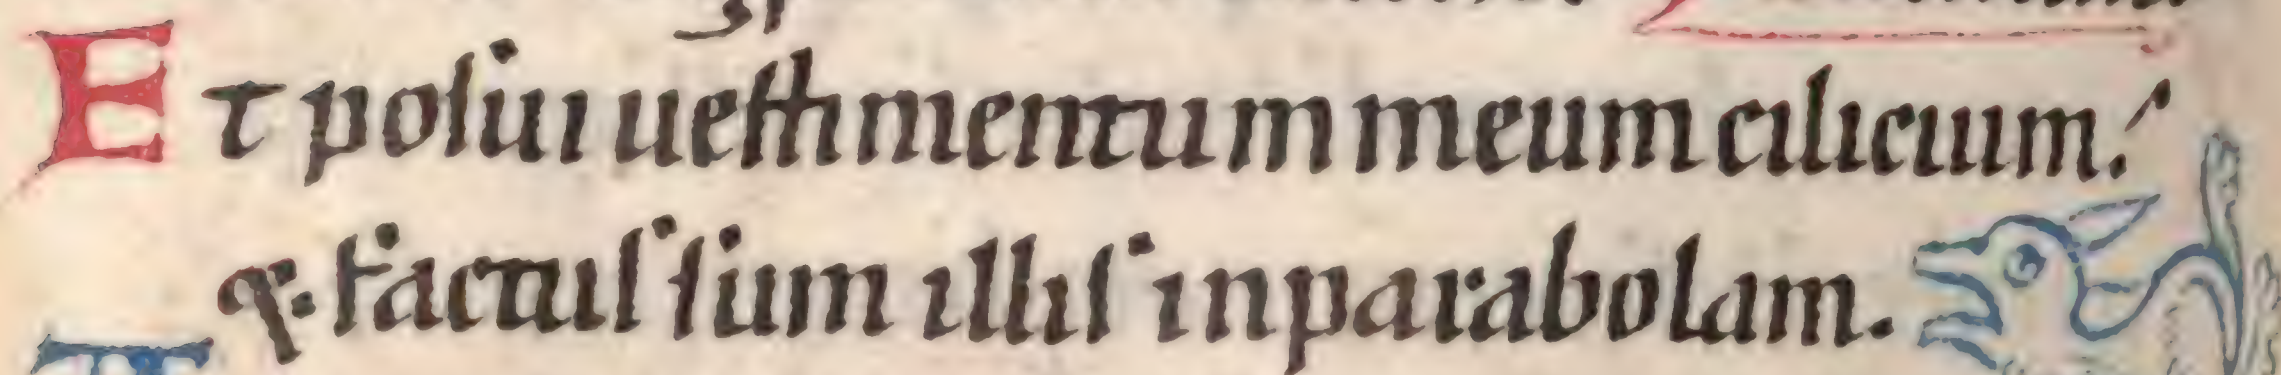 Et posui uestimentum meum cilicium.
q: factus sum illis inparabolam.